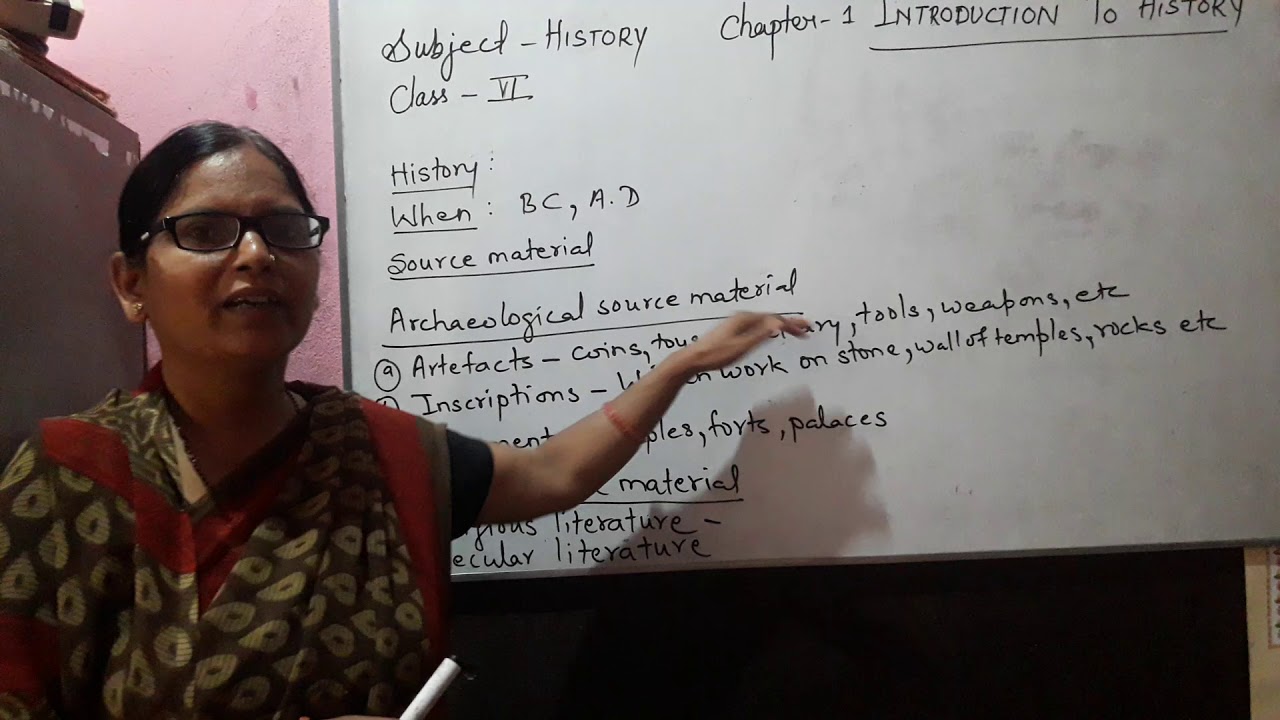 Subject - HISTORY
Chapter - 1 INTRODUCTION TO HISTORY
Class - VI
History :
When : BC, A.D
Source material
Archaeological source material
(a) Artefacts - coins, tools, weapons, etc
Inscriptions - work on stone, wall of temples, rocks etc
forts, palaces
material
literature -
literature